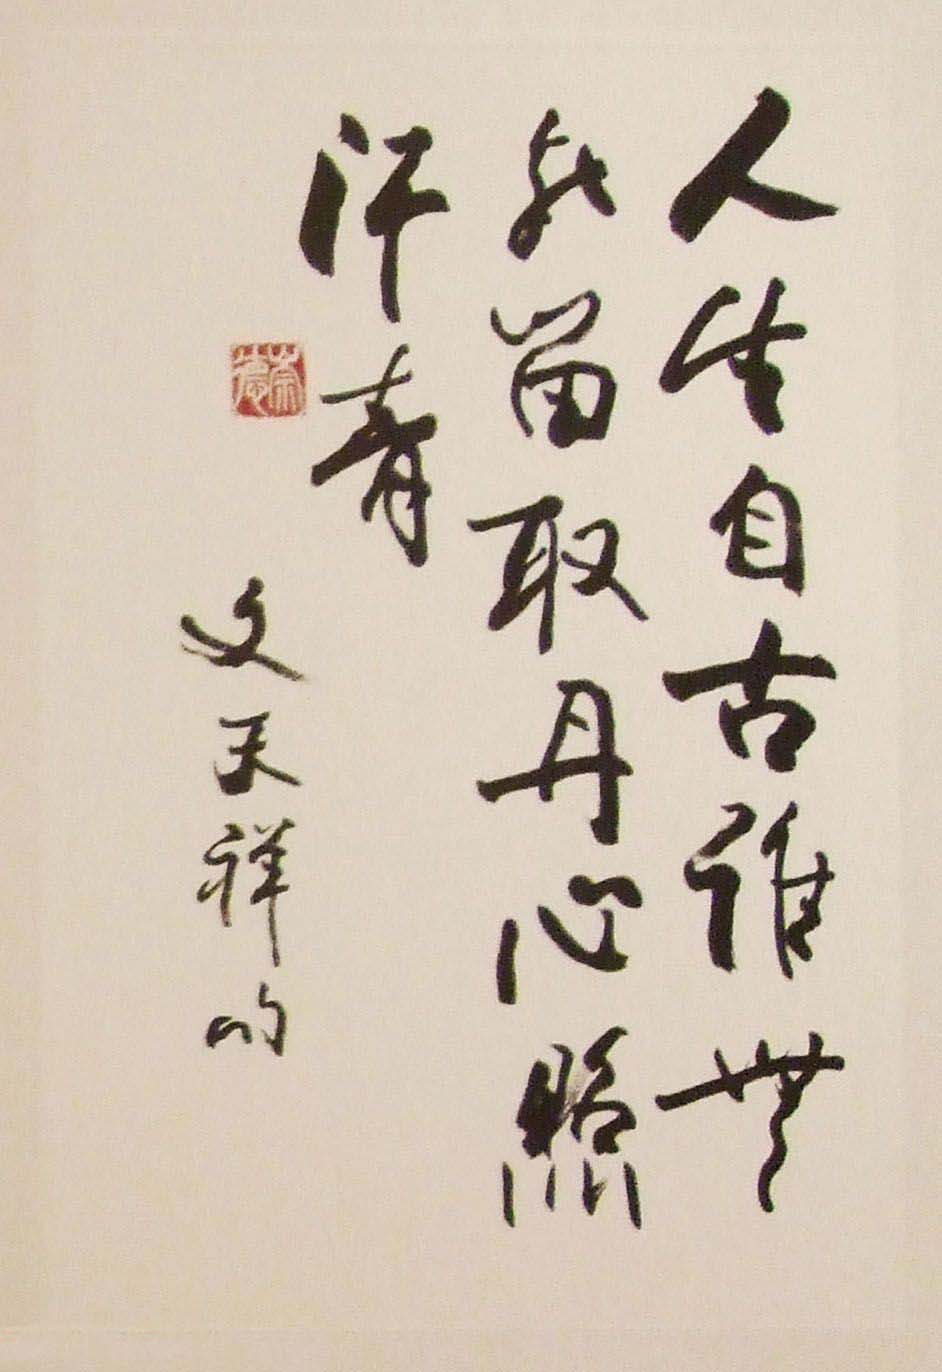 人生自古誰無
死留取丹心照
汗青
文天祥句